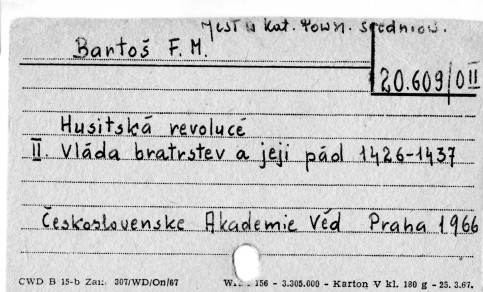 jest w kat. Pown. średniow.
Bartoš F. M.
20.609/OII
Husitská revolucé
II. Vláda bratrstev a její pád 1426-1437
Československe Akademie Věd Praha 1966
CWD B 15-b Zam. 307/WD/On/67 156 - 3.305.000 - Karton V kl. 180 g - 25. 3.67.